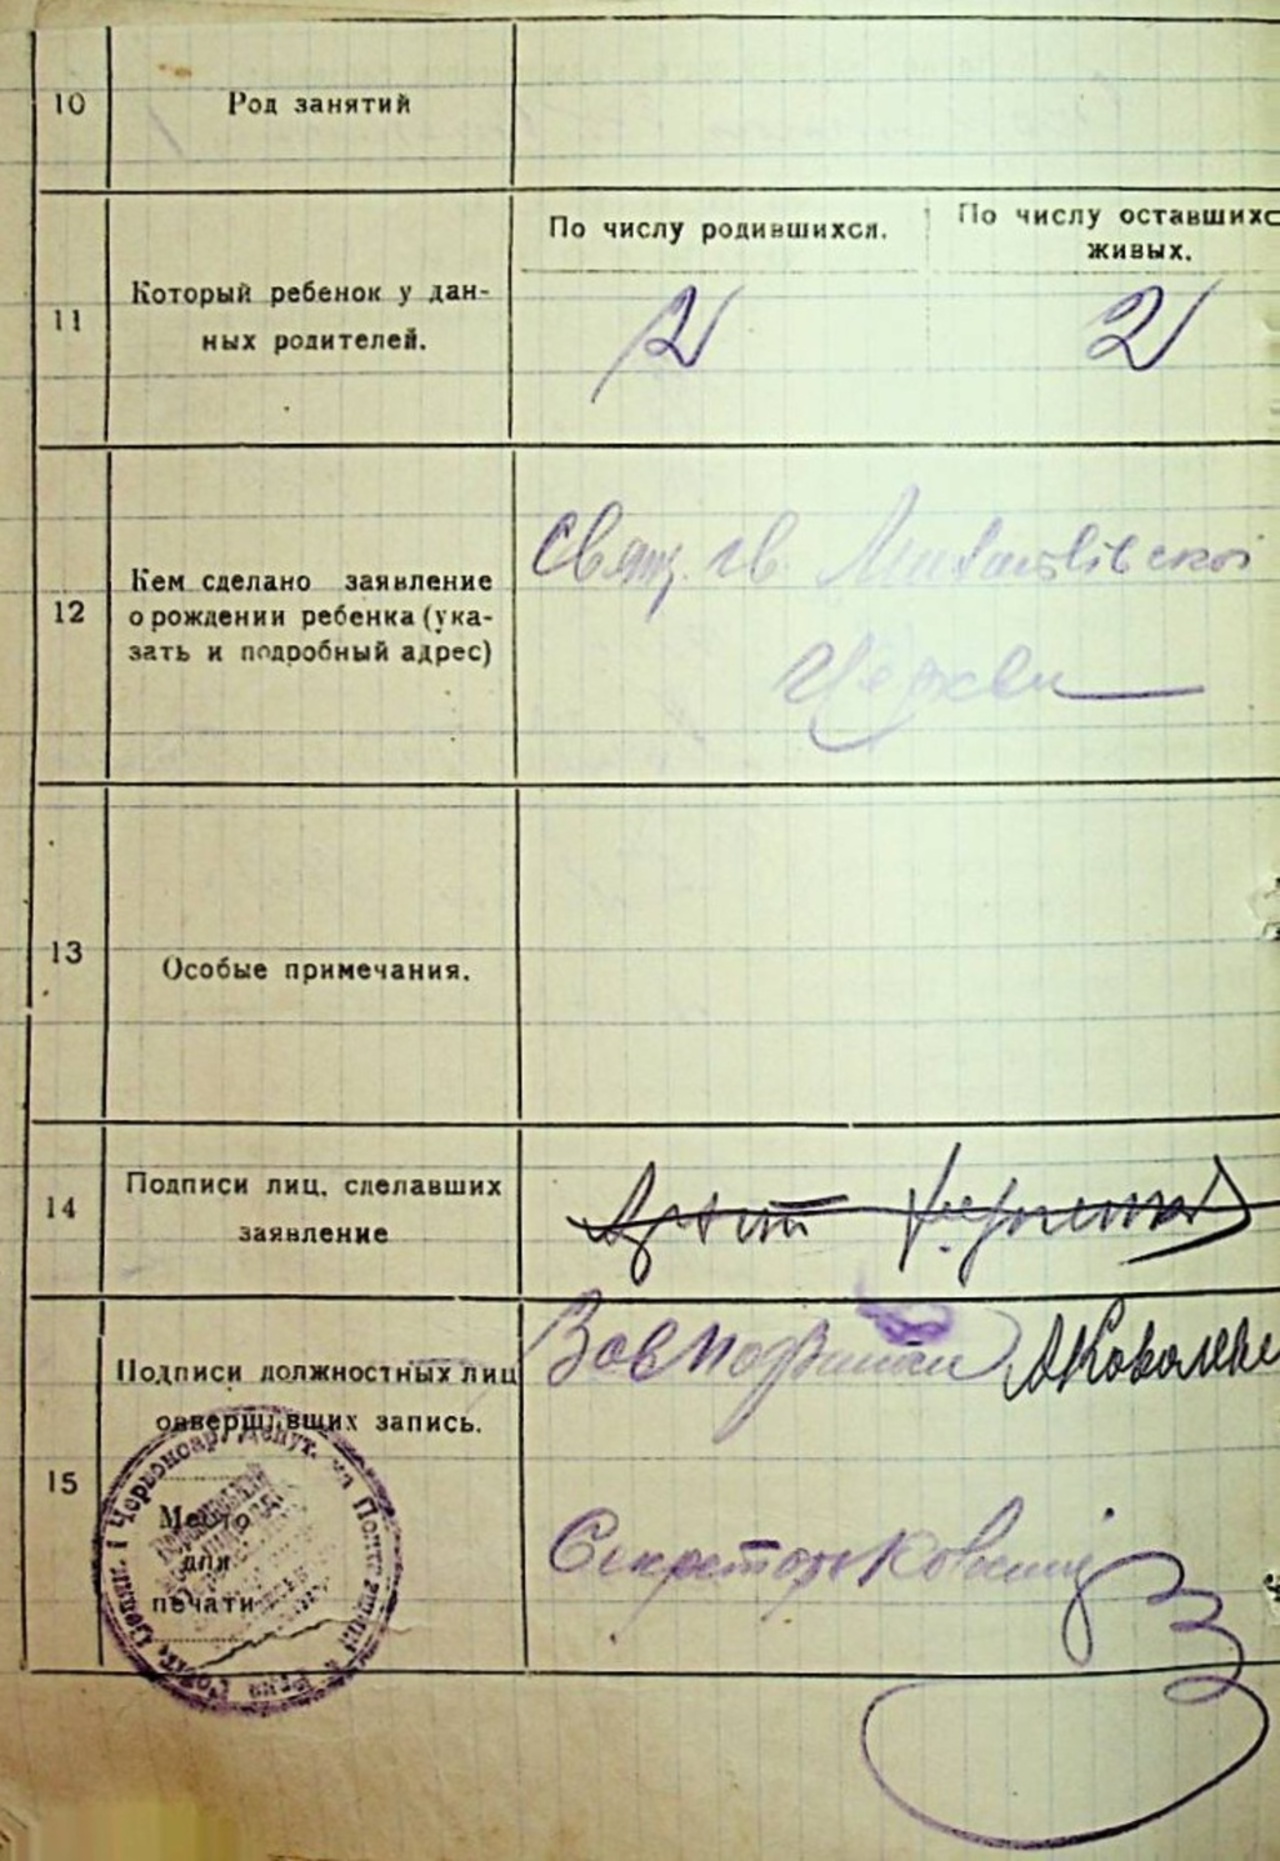 10
Род занятий
11
Который ребенок у дан-
ных родителей.
По числу родившихся.
По числу оставшихс
живых.
2
2
12
Кем сделано заявление
о рождении ребенка (ука-
зать и подробный адрес)
Свящ. св.
Церкви
13
Особые примечания.
14
Подписи лиц, сделавших
заявление
15
Подписи должностных лиц
совершивших запись.
Место
для
печати
Коваленк
Секретарь